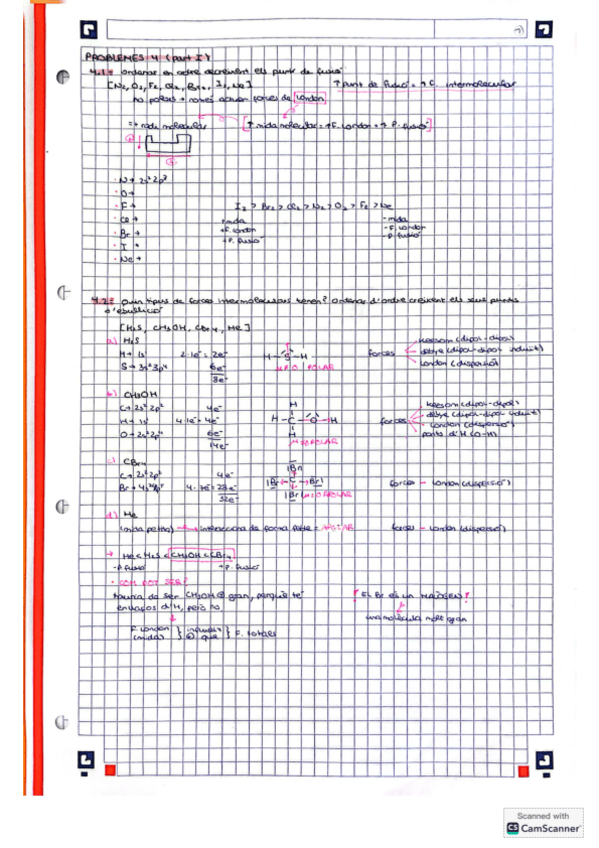 PROBLEMES 4 (part I)
4.1. Ordenar en ordre decreixent els punts de fusió
[N₂, O₂, F₂, Cl₂, Br₂, I₂, Ne]
↑ punt de fusió = ↑ F. intermolecular
no polars → només actuen forces de London
=+ radi molecular
[↑ mida molecular = ↑ F. London = ↑ P. fusió]
· N → 2s² 2p³
· O →
· F →
· Cl →
· Br →
· I →
· Ne →
I₂ > Br₂ > Cl₂ > N₂ > O₂ > F₂ > Ne
+ mida
+ F. London
+ P. fusió
- mida
- F. London
- P. fusió
4.2. Quin tipus de forces intermoleculars tenen? Ordenar d'ordre creixent els seus punts
d'ebullició
[H₂S, CH₃OH, CBr₄, He]
a) H₂S
H → 1s¹ 2·1e⁻ = 2e⁻
S → 3s² 3p⁴ 6e⁻
8e⁻
H-S-H
μ≠0 | POLAR
forces
Keesom (dipol-dipol)
debye (dipol-dipol induït)
London (dispersió)
b) CH₃OH
C → 2s² 2p² 4e⁻
H → 1s¹ 4·1e⁻ = 4e⁻
O → 2s² 2p⁴ 6e⁻
14e⁻
H
H-C-O-H
H
μ≠0 POLAR
forces
Keesom (dipol-dipol)
debye (dipol-dipol induït)
London (dispersió)
ponts d'H (O-H)
c) CBr₄
C → 2s² 2p² 4e⁻
Br → 4s² 4p⁵ 4·7e⁻ = 28e⁻
32e⁻
|Br|
|Br-C-Br|
|Br|
APOLAR
forces - London (dispersió)
d) He
interacciona de forma feble = APOLAR
forces - London (dispersió)
→ He < H₂S < CH₃OH < CBr₄
- P. fusió
+ P. fusió
· COM POT SER?
hauria de ser CH₃OH + gran, perquè té
enllaços d'H, però no
F. London
(mida)
influeix
+ que
F. totals
! El Br és un HALOGEN !
una molècula molt gran
Scanned with
CS CamScanner